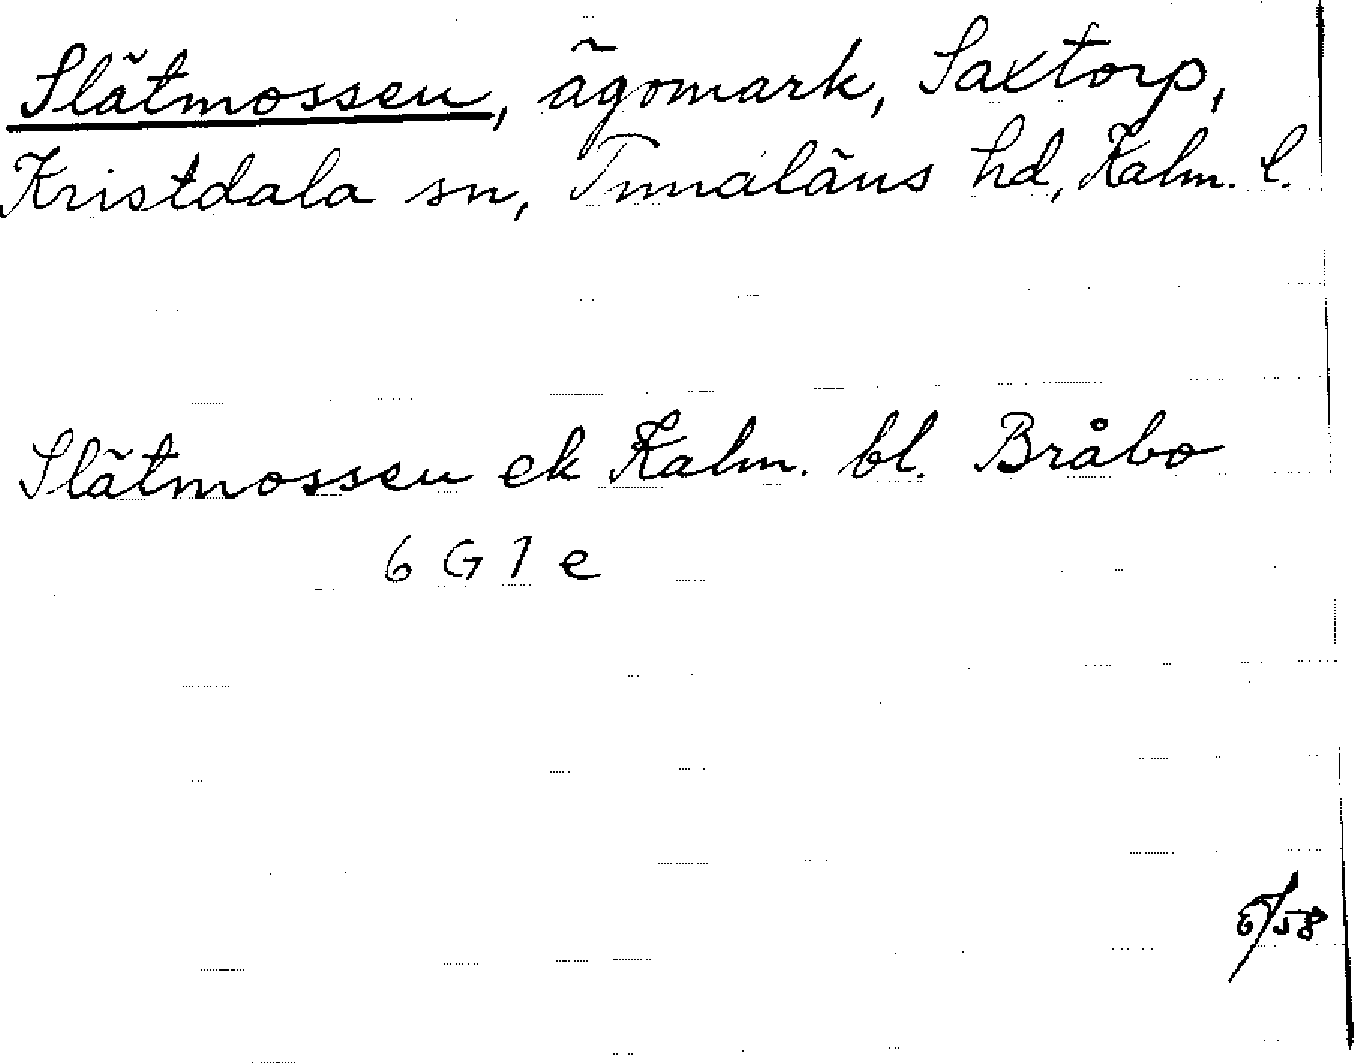 Slätmossen, ägomark, Saxtorp,
Kristdala sn, Tunaläns hd, Kalm. l.
Slätmossen ek Kalm. bl. Bråbo
6 G 7 e
6/58